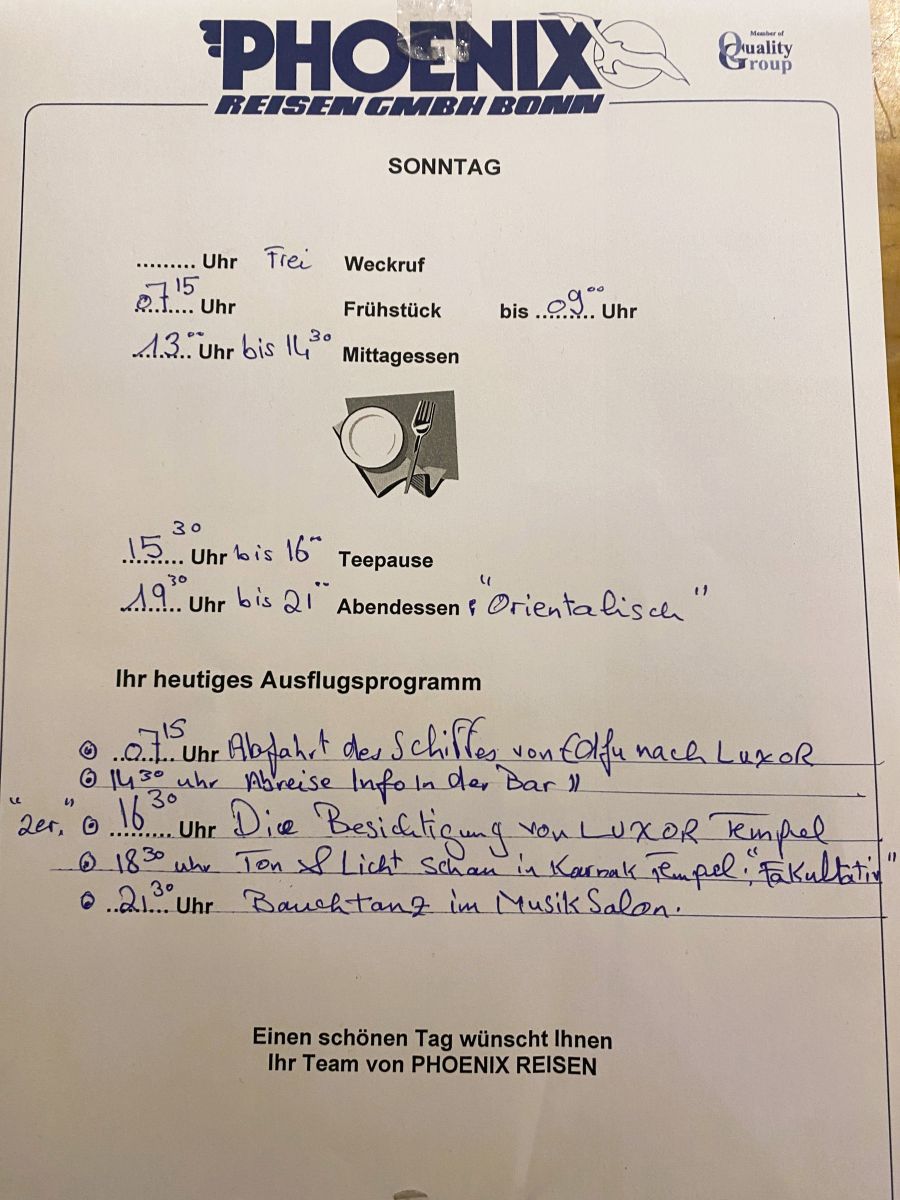 PHOENIX
REISEN GMBH BONN
Member of
Quality
Group
SONNTAG
......... Uhr Frei Weckruf
07 15 Uhr Frühstück bis 09 00 Uhr
13 00 Uhr bis 14 30 Mittagessen
15 30 Uhr bis 16 00 Teepause
19 30 Uhr bis 21 00 Abendessen : "Orientalisch"
Ihr heutiges Ausflugsprogramm
07 15 Uhr Abfahrt des Schiffes von Edfu nach LuxoR
14 30 uhr Abreise Info In der Bar "
"2er." 16 30 Uhr Die Besichtigung von LUXOR Tempel
18 30 uhr Ton & Licht Schau in Karnak Tempel : "Fakultativ"
21 30 Uhr Bauchtanz im MusikSalon.
Einen schönen Tag wünscht Ihnen
Ihr Team von PHOENIX REISEN